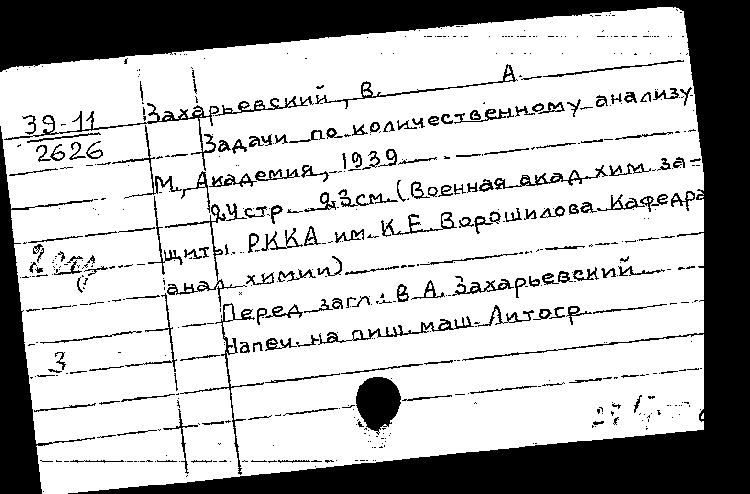 39-11
2626
Захарьевский, В. А.
Задачи по количественному анализу
М., Академия, 1939
24 стр. 23 см. (Военная акад. хим. за-
щиты РККА им. К. Е. Ворошилова. Кафедра
анал. химии)
Перед загл.: В А. Захарьевский
Напеч. на пиш. маш. Литогр.
2
3